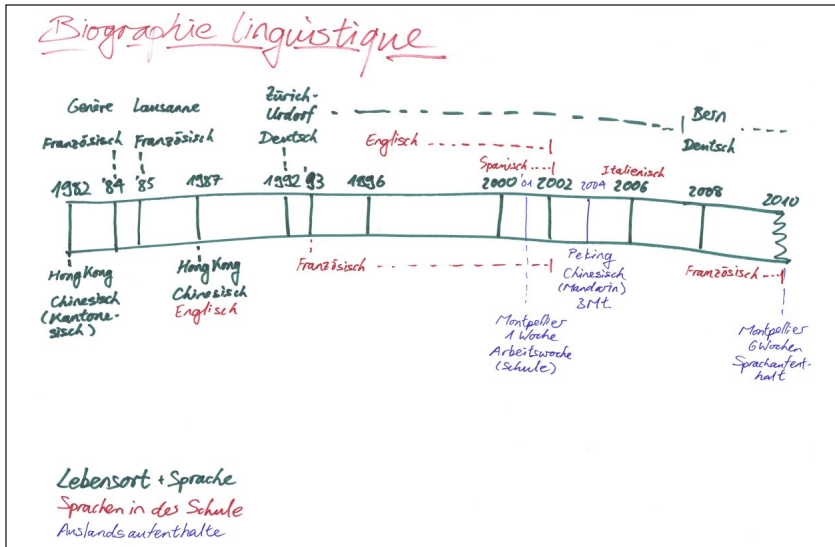 Biographie linguistique
Genève Lausanne Zürich-
Urdorf Bern
Französisch Französisch Deutsch Deutsch
Englisch
Spanisch Italienisch
1982 '84 '85 1987 1992 '93 1996 2000 '01 2002 2004 2006 2008 2010
HongKong
Chinesisch
(Kantone-
sisch)
HongKong
Chinesisch
Englisch
Französisch
Montpellier
1 Woche
Arbeitswoche
(Schule)
Peking
Chinesisch
(Mandarin)
3Mt.
Französisch
Montpellier
6Wochen
Sprachaufent-
halt
Lebensort + Sprache
Sprachen in der Schule
Auslandsaufenthalte